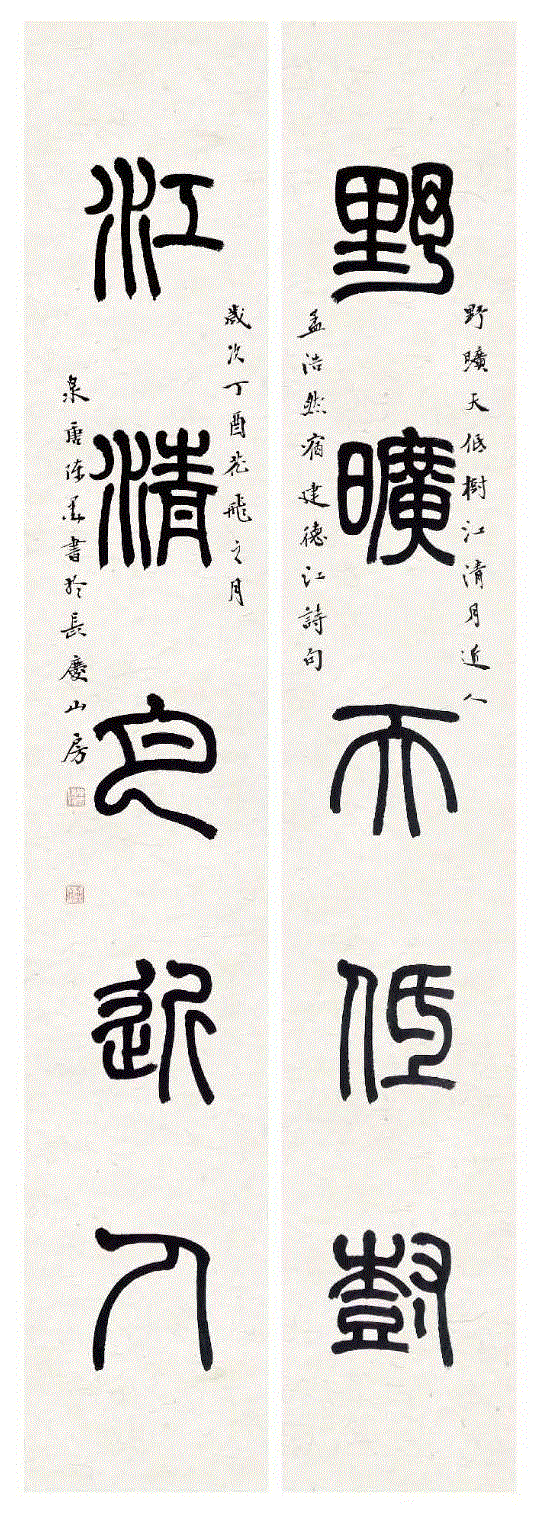 野曠天低樹
江清月近人
野曠天低樹江清月近人
孟浩然宿建德江詩句
歲次丁酉花飛之月
泉唐陳書於長慶山房